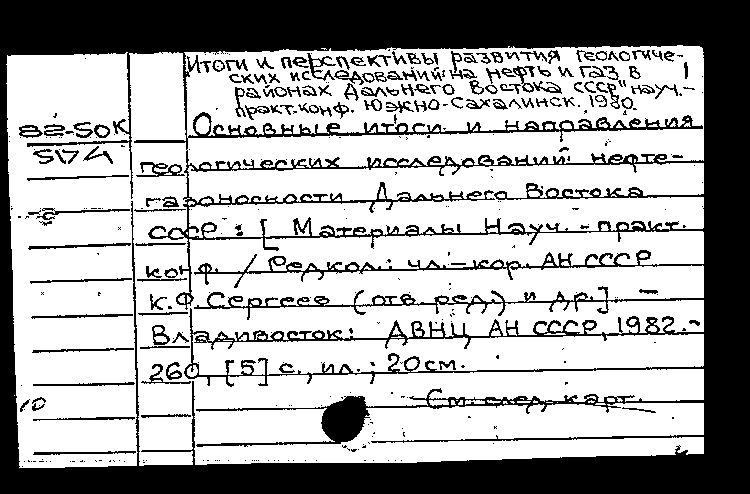 Итоги и перспективы развития геологиче-
ских исследований на нефть и газ в 1
районах Дальнего Востока СССР" науч.-
практ. конф. Южно-Сахалинск, 1980.
Основные итоги и направления
геологических исследований нефте-
газоносности Дальнего Востока
СССР : [ Материалы Науч. - практ.
конф. / Редкол.: чл.-кор. АН СССР
К.Ф. Сергеев (отв. ред.) и др.]. —
Владивосток: ДВНЦ АН СССР, 1982. -
260, [5] с., ил.; 20 см.
См. след. карт.
88-50К
5174
10